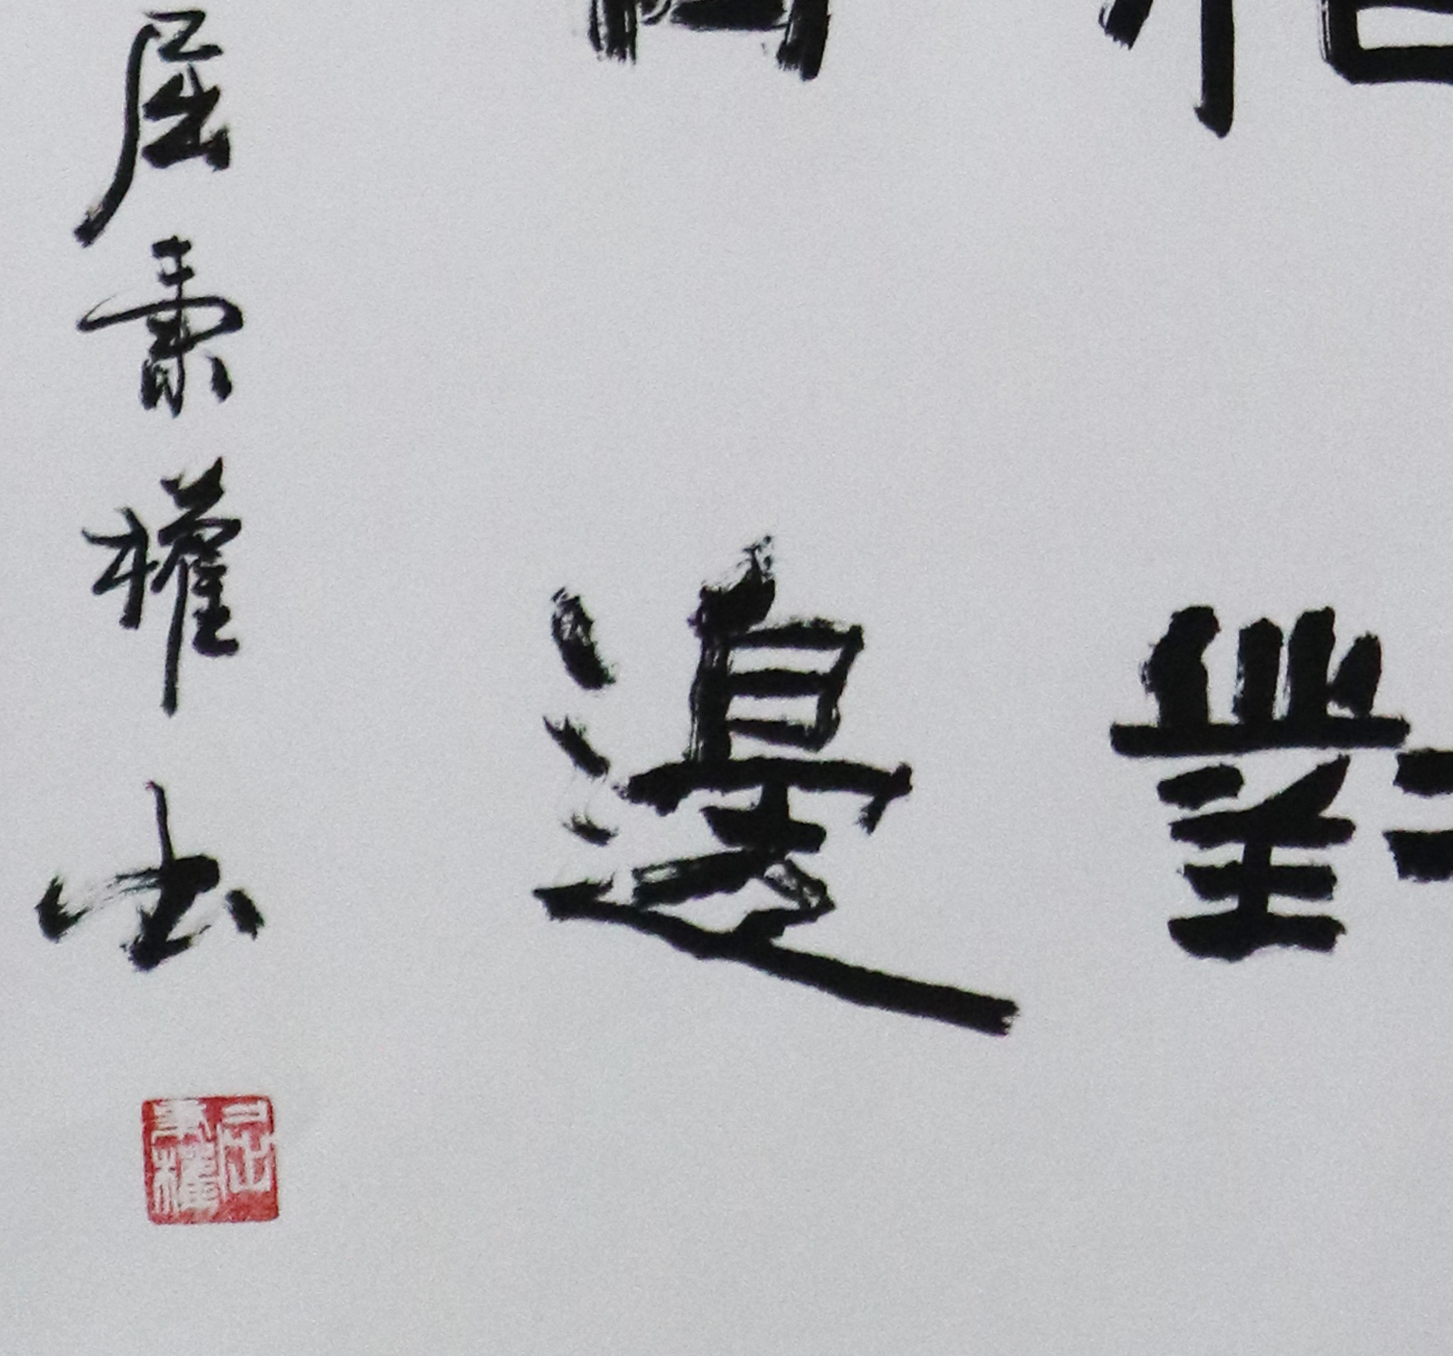 相對
邊
屈秉權書
屈秉權